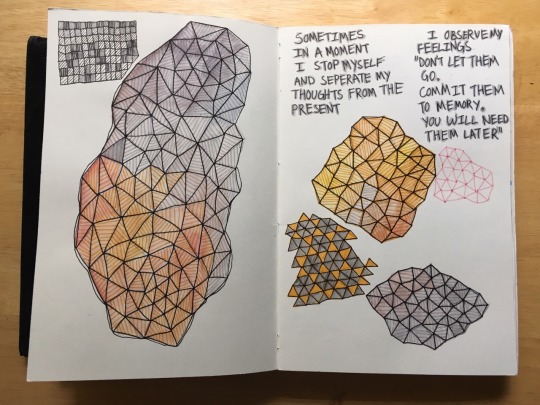 SOMETIMES
IN A MOMENT
I STOP MYSELF
AND SEPERATE MY
THOUGHTS FROM THE
PRESENT
I OBSERVE MY
FEELINGS
"DON'T LET THEM
GO.
COMMIT THEM
TO MEMORY.
YOU WILL NEED
THEM LATER"